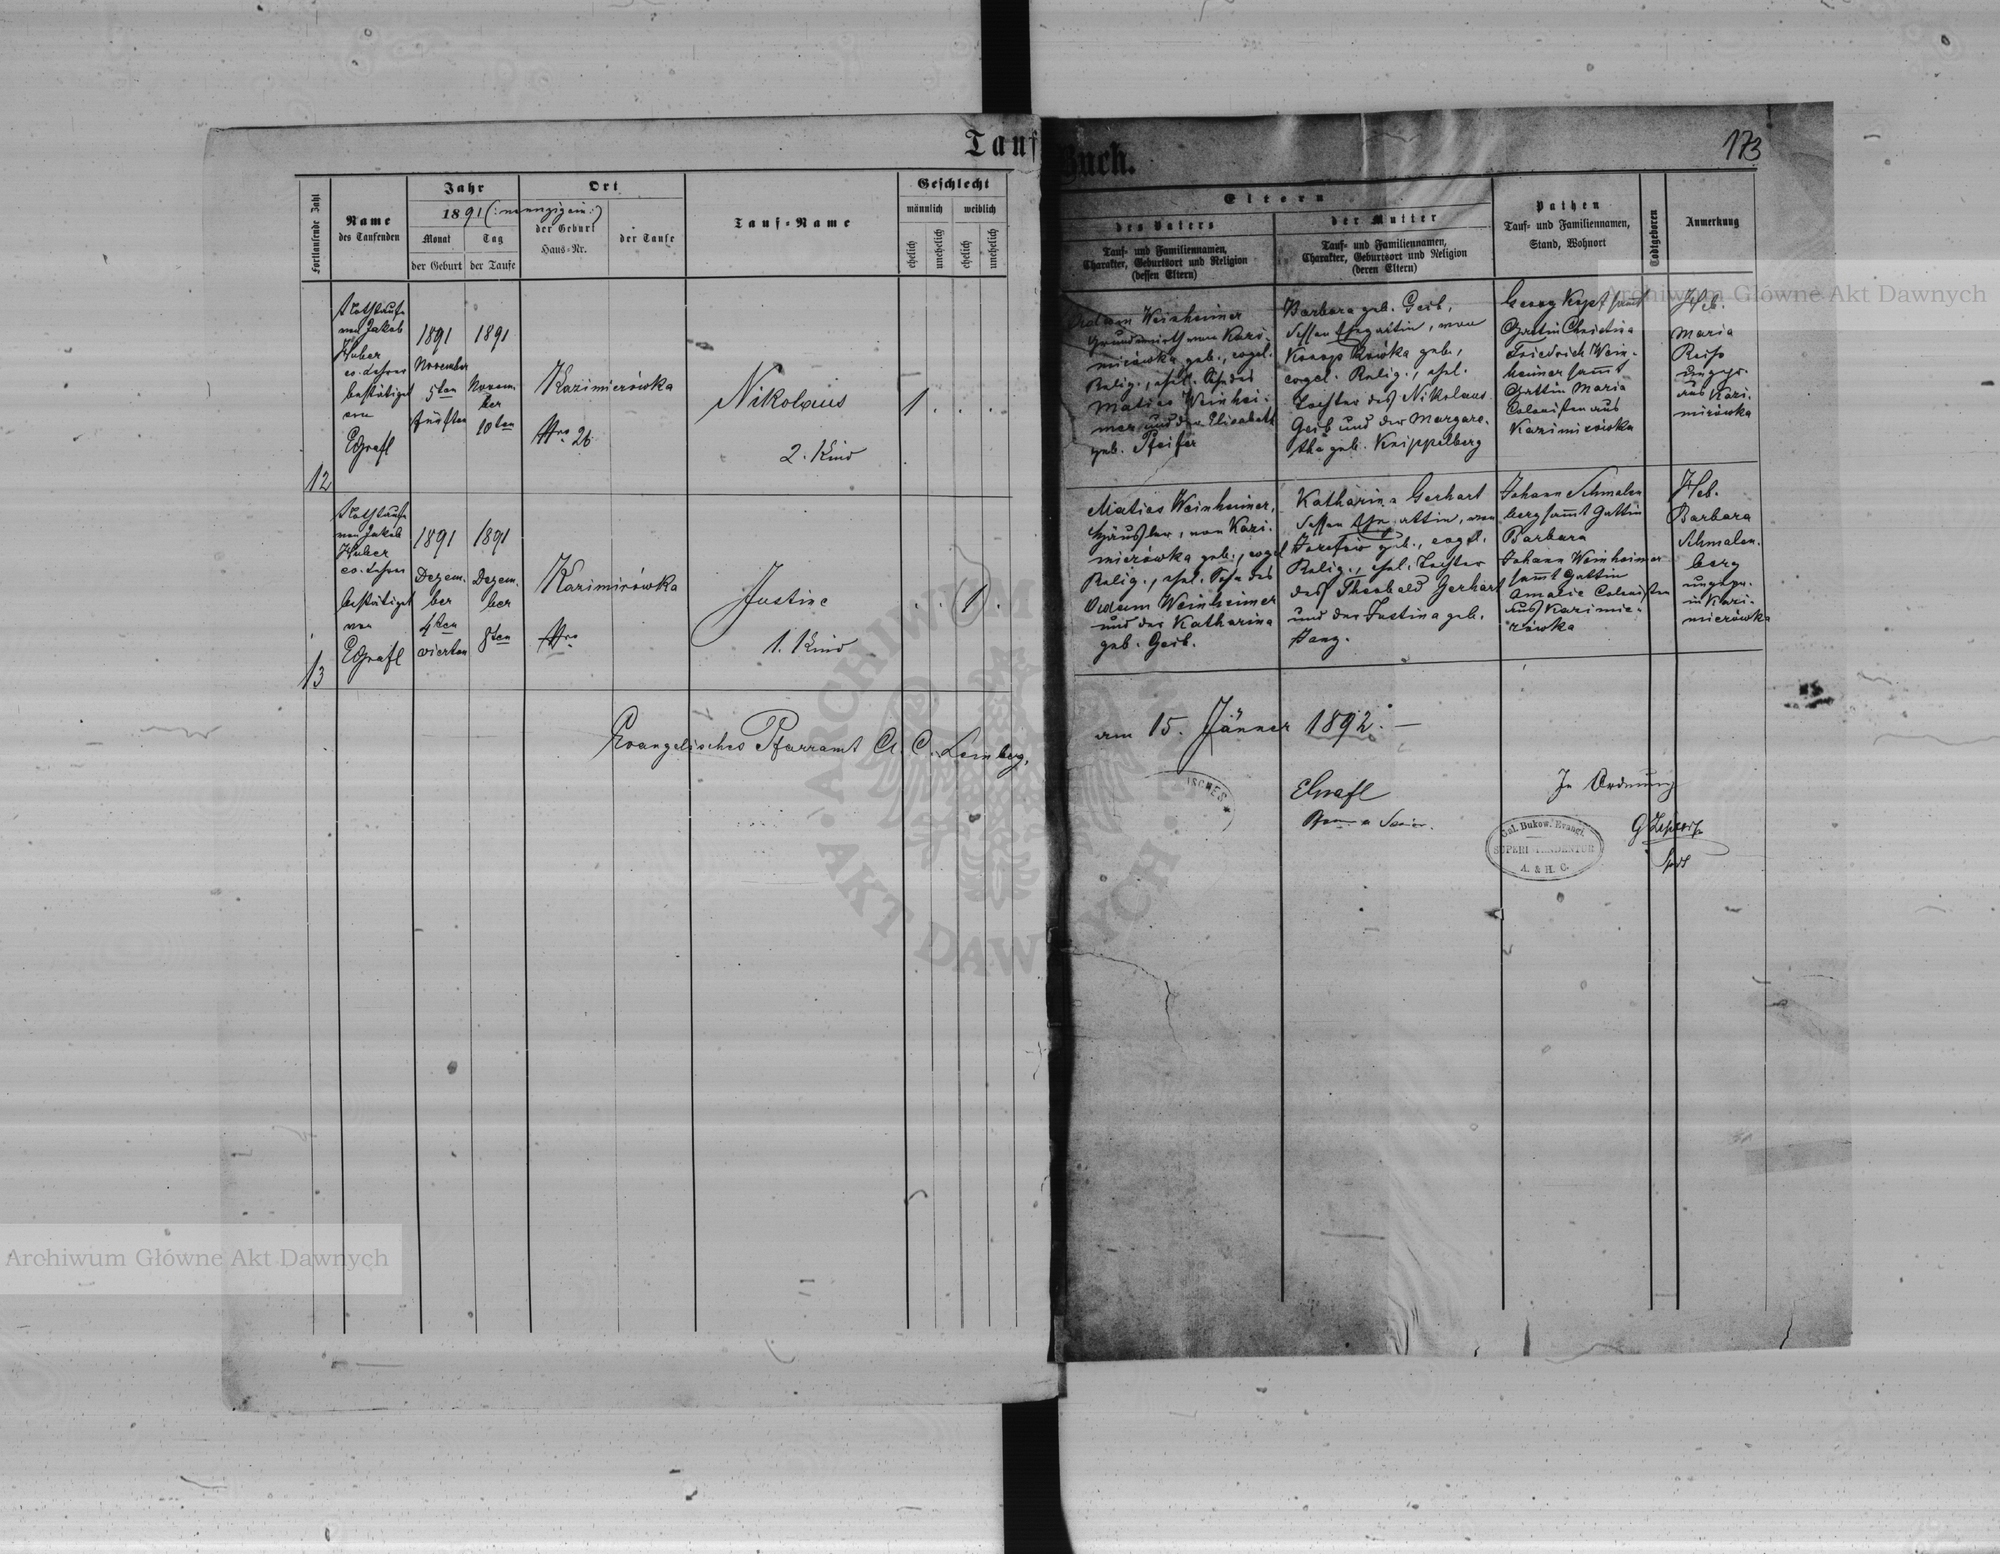 Tauf
Buch.
173
Fortlaufende Zahl
Name
des Taufenden
Jahr
1891 (: neunzigein :)
Monat
Tag
der Geburt
der Taufe
Ort
der Geburt
Haus-Nr.
der Taufe
Tauf-Name
Geschlecht
männlich
weiblich
ehelich
unehelich
ehelich
unehelich
Eltern
des Vaters
Tauf- und Familiennamen,
Charakter, Geburtsort und Religion
(dessen Eltern)
der Mutter
Tauf- und Familiennamen,
Charakter, Geburtsort und Religion
(deren Eltern)
Pathen
Tauf- und Familiennamen,
Stand, Wohnort
Todtgeboren
Anmerkung
12
Nothtaufe
von Jakob
Huber
ev. Lehrer
bestätiget
von
EGrafl
1891
November
5ten
fünften
1891
Novem-
ber
10ten
Kazimierówka
Nro 26
Nikolaus
2. Kind
1 . . .
Adam Weinheimer
Grundwirth von Kazi-
mierówka geb., evgel.
Relig., ehel. Sohn des
Matias Weinhei-
mer und der Elisabeth
geb. Pfeifer
Barbara geb. Geib,
dessen Ehegattin, von
geb.,
evgel. Relig., ehel.
Tochter des Nikolaus
Geib und der Margare-
tha geb. Knippelberg
Georg Kopf samt
Gattin Christina
Friedrich Wein-
heimer sammt
Gattin Maria
Colonisten aus
Kazimirówka
Heb.
Maria
Reiß
ungepr.
aus Kazi-
mirówka
13
Nothtaufe
von Jakob
Huber
ev. Lehrer
bestätiget
von
EGrafl
1891
Dezem-
ber
4ten
vierten
1891
Dezem-
ber
8ten
Kazimirówka
Nro
Justine
1. Kind
. . 1 .
Matias Weinheimer,
Häusler, von Kazi-
mierówka geb., evgel
Relig., ehel. Sohn des
Adam Weinheimer
und der Katharina
geb. Geib.
Katharina Gerhart
dessen Ehegattin, von
Józefów geb., evgl.
Relig., ehel. Tochter
des Theobald Gerhart
und der Justina geb.
Johann Schmalen
berg sammt Gattin
Barbara
Johann Weinheimer
sammt Gattin
Amalie Colonisten
aus Kazimie-
rówka
Heb.
Barbara
Schmalen-
berg
ungepr.
in Kazi-
mierówka
Evangelisches Pfarramt A. C. Lemberg,
am 15. Jänner 1892. —
ISCHES *
EGrafl
Pfarrer u. Senior.
In Ordnung
Gal. Bukow. Evangl.
SUPERINTENDENTUR
A. & H. C.
Archiwum Główne Akt Dawnych
Archiwum Główne Akt Dawnych
ARCHIWUM
AKT DAWNYCH